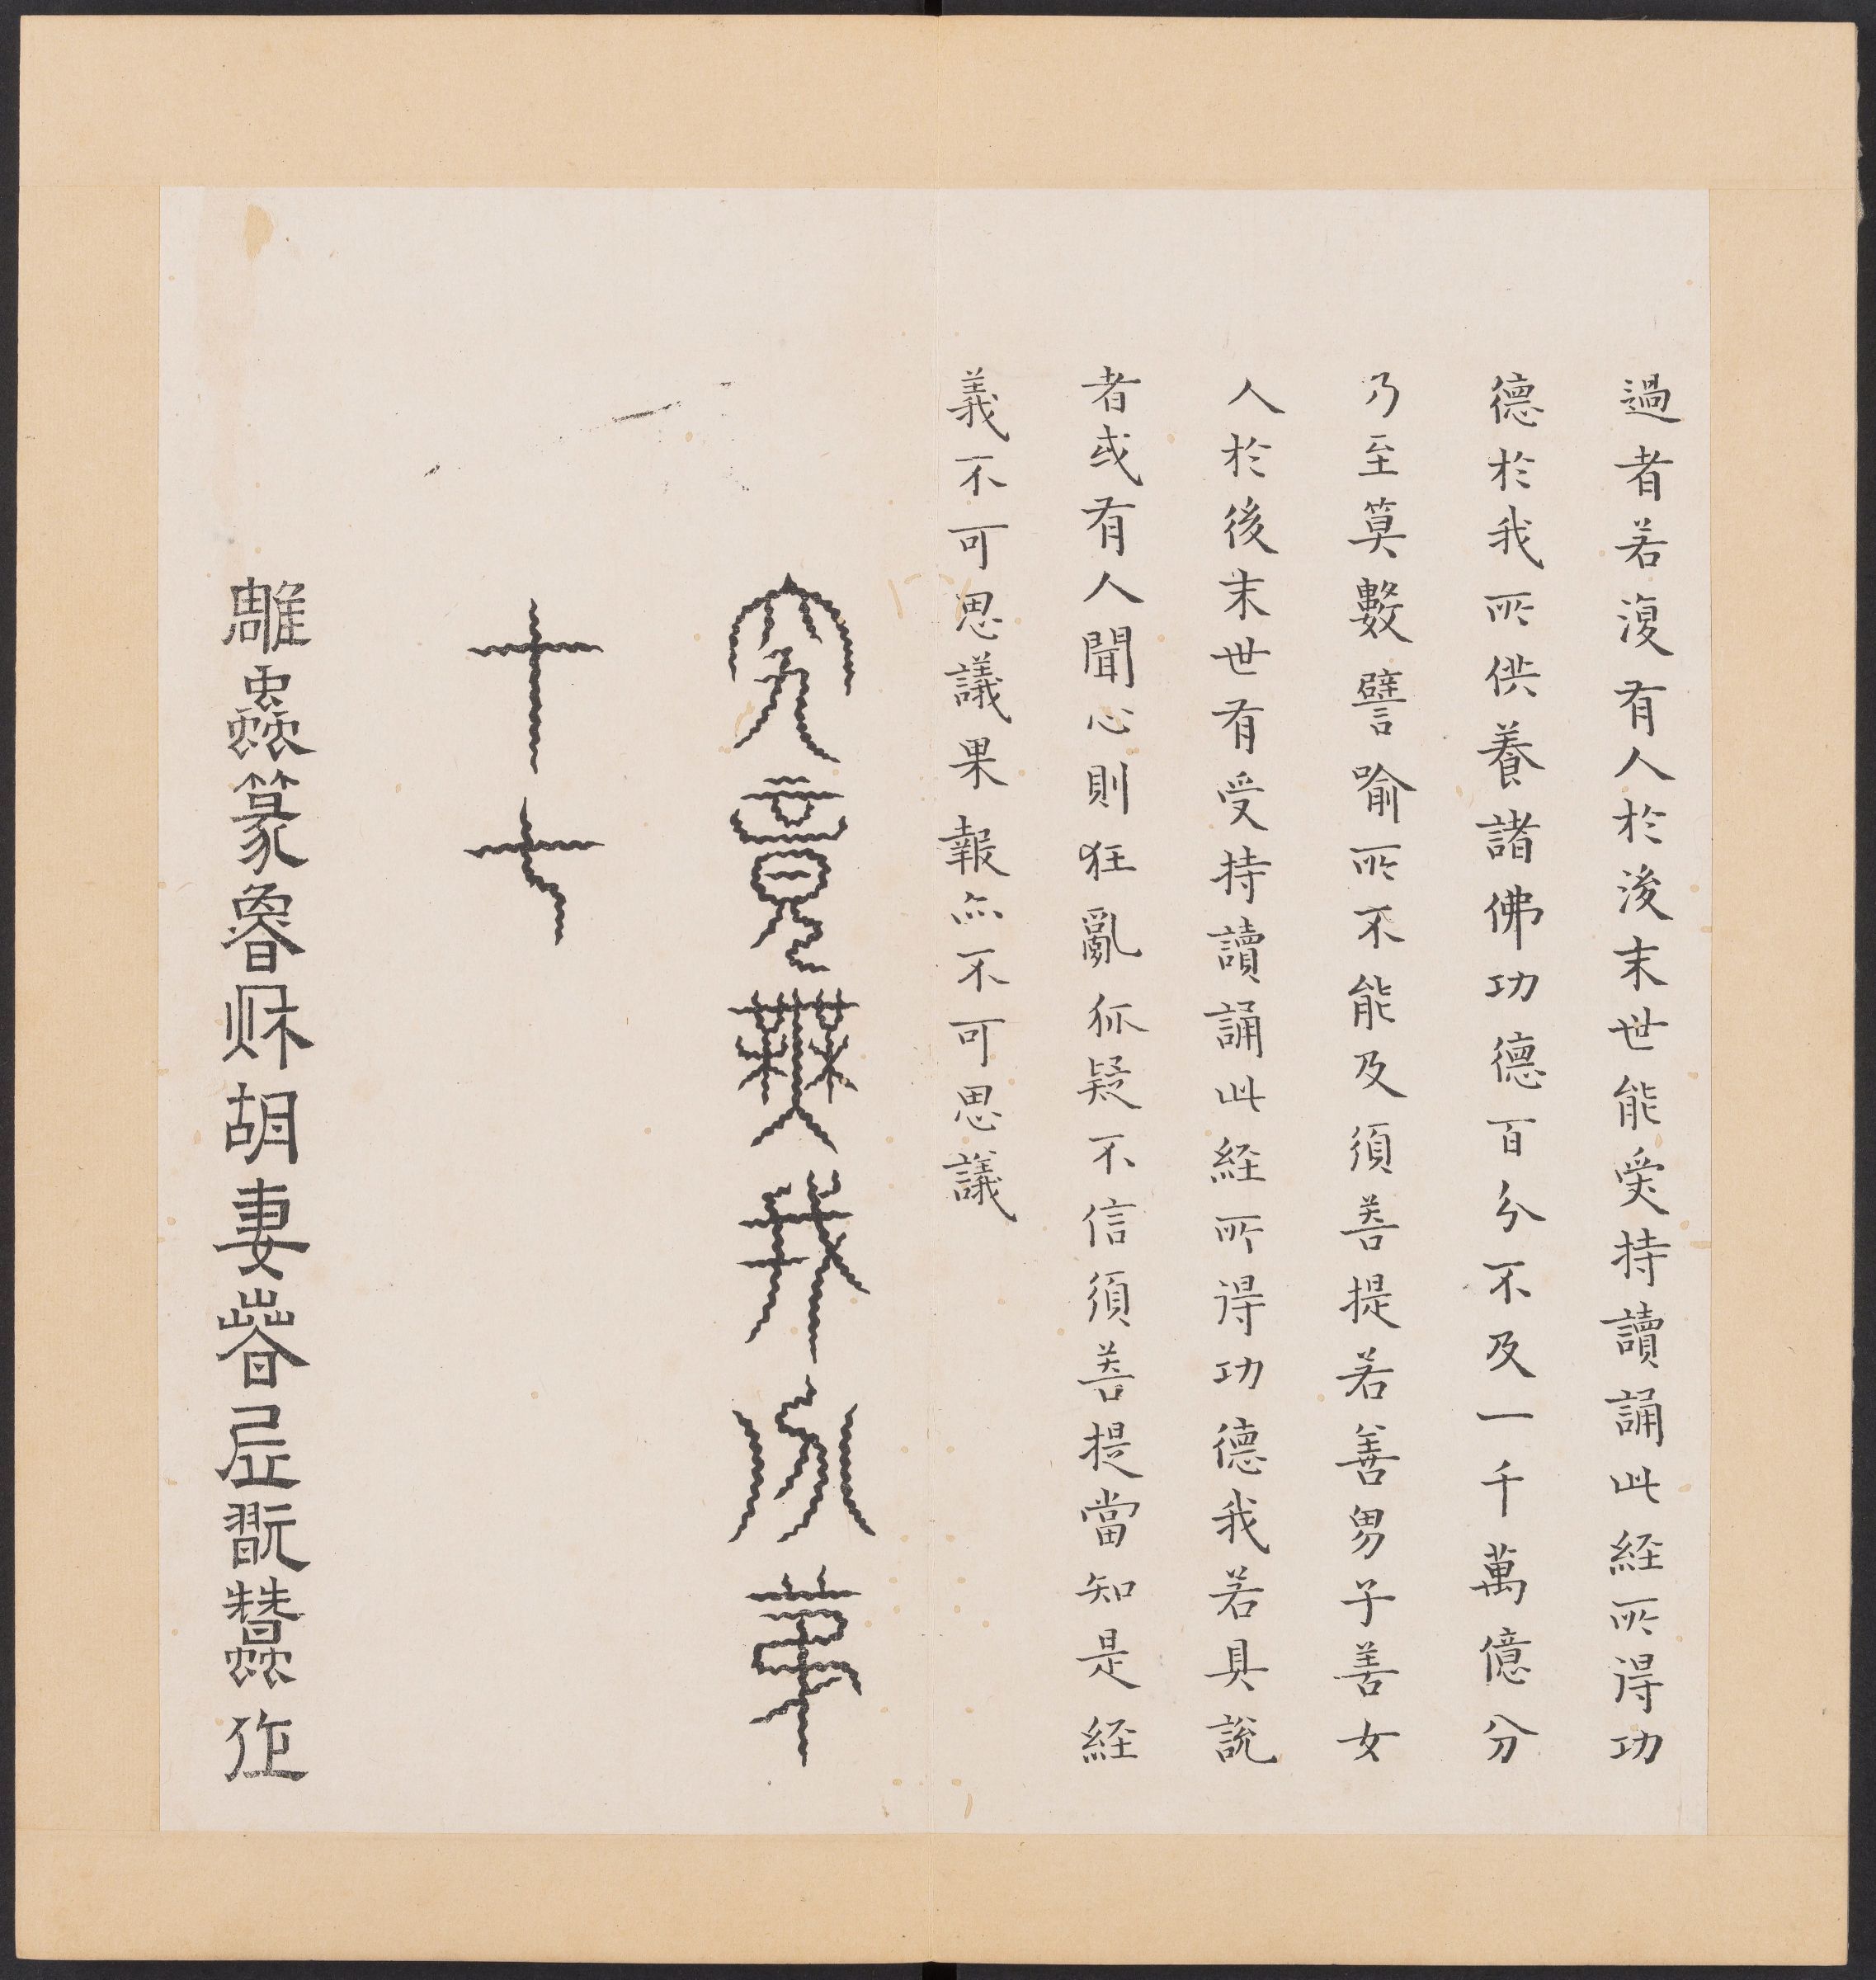 過者若復有人於後末世能受持讀誦此経所得功
德於我所供養諸佛功德百分不及一千萬億分
乃至算數譬喻所不能及須菩提若善男子善女
人於後末世有受持讀誦此経所得功德我若具說
者或有人聞心則狂亂狐疑不信須菩提當知是経
義不可思議果報亦不可思議
究竟無我分第
十七
雕蟲篆魯秋胡妻春居翫蠶作